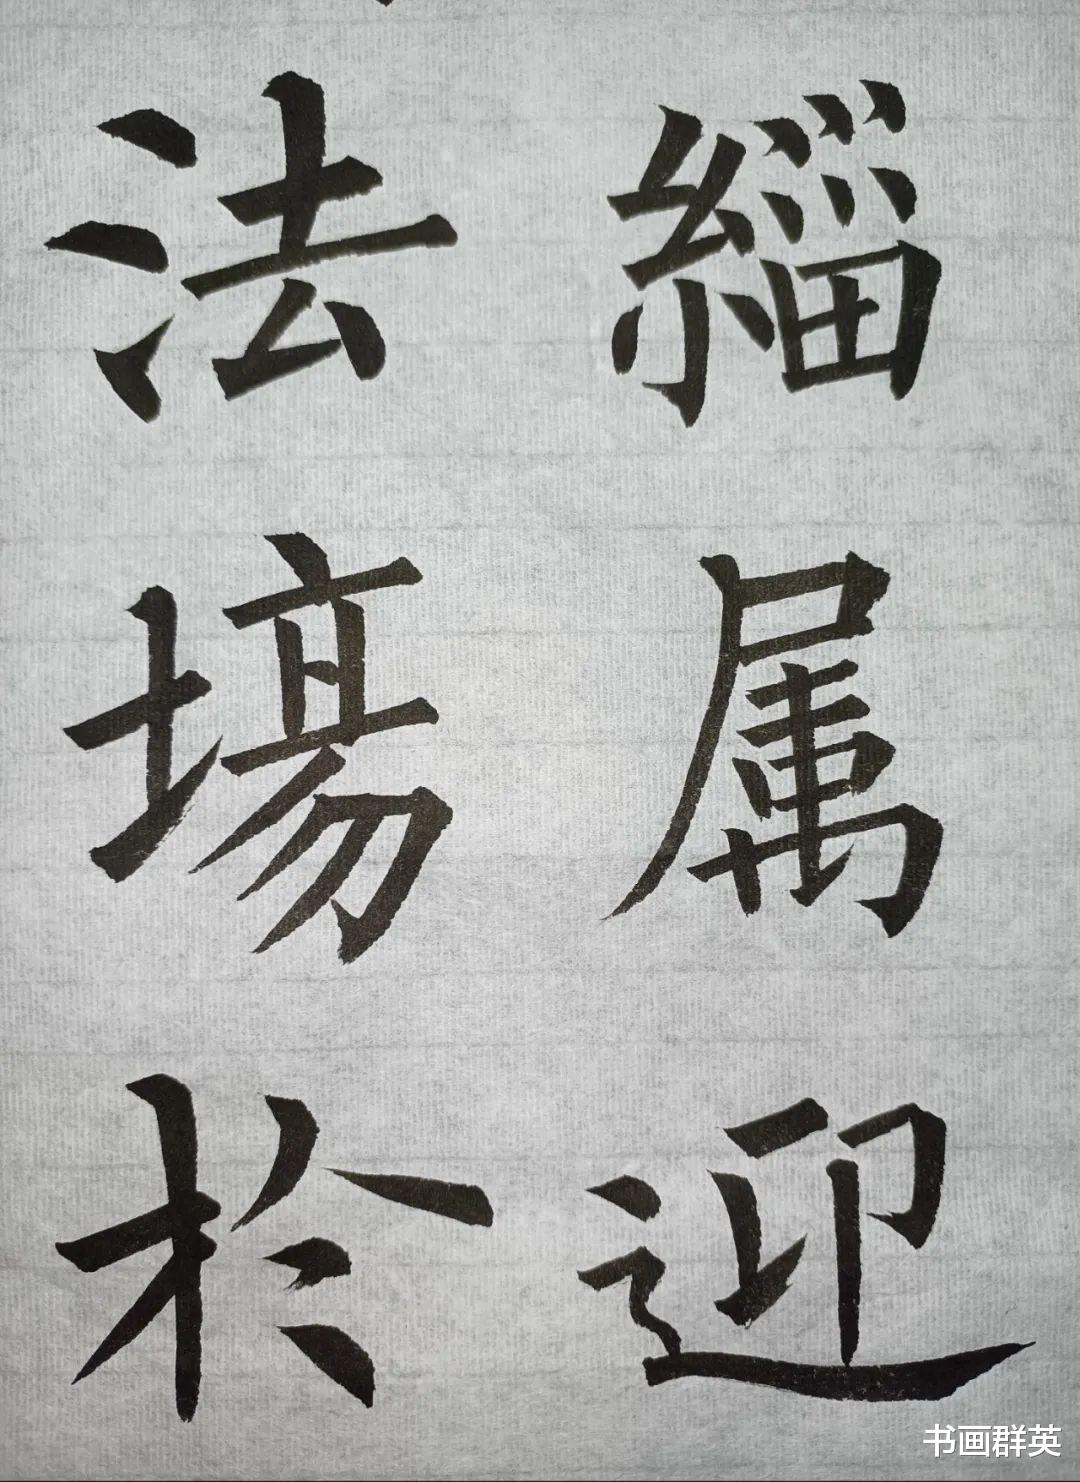 緇属迎
法場於
书画群英